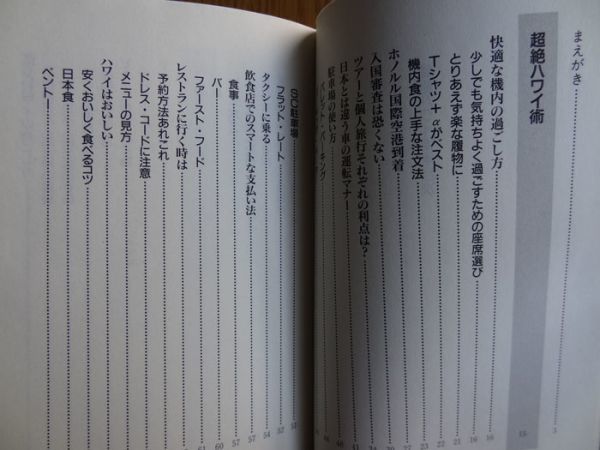 まえがき 3
超絶ハワイ術 15
快適な機内の過ごし方 16
少しでも気持ちよく過ごすための座席選び 18
とりあえず楽な履物に 21
Tシャツ+αがベスト 22
機内食の上手な注文法
ホノルル国際空港到着
入国審査は恐くない
ツアーと個人旅行それぞれの利点は?
日本とは違う車の運転マナー
駐車場の使い方
バレット・パーキング
SC駐車場
フラット・レート 52
タクシーに乗る 54
飲食店でのスマートな支払い法 57
食事 57
バー 60
ファースト・フード 61
レストランに行く時は
予約方法あれこれ
ドレス・コードに注意
メニューの見方
ハワイはおいしい
安くおいしく食べるコツ
日本食
ベントー